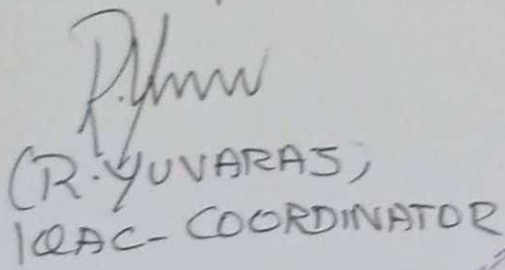 R.Yuv
(R. YUVARAJ)
IQAC- COORDINATOR